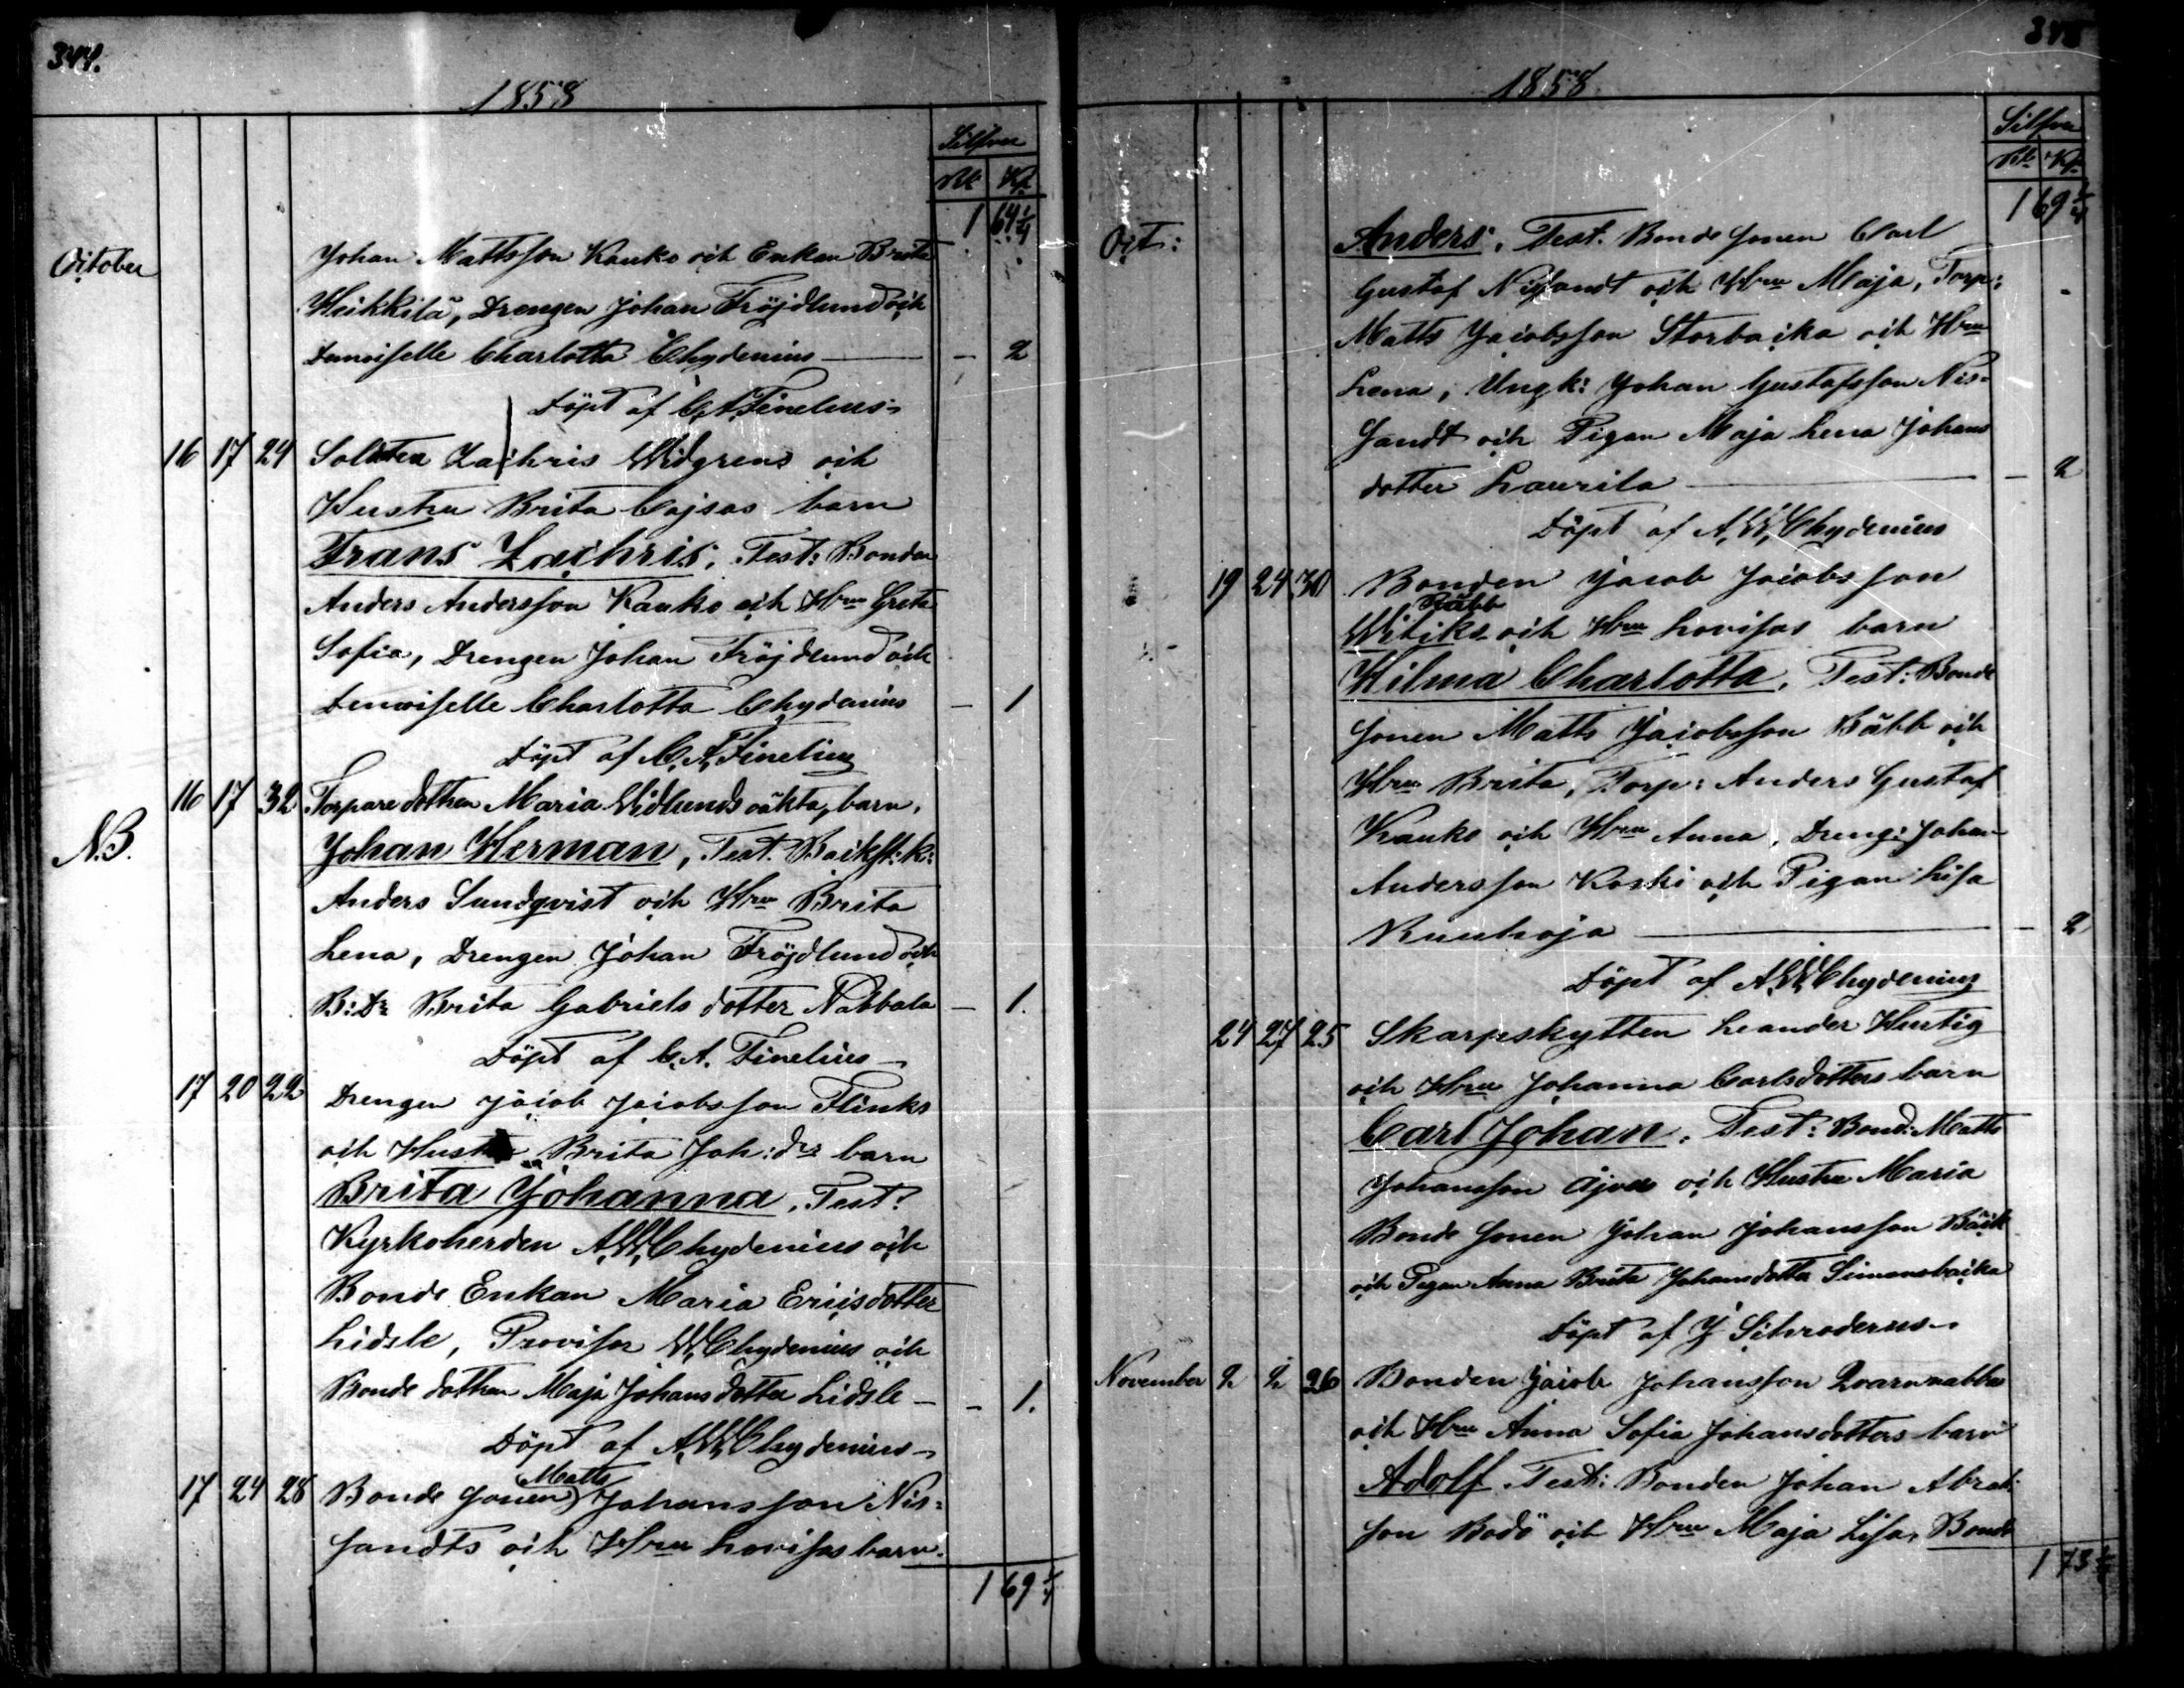 344.
1858
Silfver
Rbl Kp.
1 64 1/4
October
Johan Mattsson Kauko och Enkan Brita
Heikkilä, Drengen Johan Fröjdlund och
Demoiselle Charlotta Chydenius — – 2
Döpt af C. A. Finelius
16 17 24 Soldaten Zachris Widgrens och
Hustru Brita Cajsas barn
Frans Zachris; Test: Bonden
Anders Andersson Kauko och Hru Greta
Sofia, Drengen Johan Fröjdlund och
Demoiselle Charlotta Chydenius – 1
Döpt af C. A. Finelius
16 17 32 Torpare dottren Maria Widlunds oäkta barn,
N.B.
Johan Herman, Test. Backst:k:
Anders Sundqvist och Hru Brita
Lena, Drengen Johan Fröjdlund och
B: Dr Brita Gabriels dotter Nabbala – 1.
Döpt af C. A. Finelius
17 20 22 Drengen Jacob Jacobsson Flinks
och Hustru Brita Joh: drs barn
Brita Johanna, Test:
Kyrkoherden A. W. Chydenius och
Bonde Enkan Maria Ericsdotter
Lidsle, Provisor W. Chydenius och
Bonde dottren Maja Johans dotter Lidsle – – 1.
Döpt af A. W. Chydenius
Matts
17 24 28 Bonde sonen Johansson Nis=
sandts och Hru Lovisas barn.
1 69 1/4
345
1858
Silfver
Rbl Kp.
1 69 1/4
Oct:
Anders, Test. Bonde sonen Carl
Gustaf Nissandt och Hru Maja, Torp:
Matts Jacobsson Storbacka och Hru
Lena, Ungk: Johan Gustafsson Nis=
sandt och Pigan Maja Lena Johans
dotter Laurila — – 2
Döpt af A. W. Chydenius
19 24 30 Bonden Jacob Jacobsson
Räbb
Witick och Hru Lovisas barn
Hilma Charlotta, Test: Bonde
sonen Matts Jacobsson Räbb och
Hru Brita, Torp: Anders Gustaf
Kauko och Hru Anna, Dreng: Johan
Andersson Koski och Pigan Lisa
— – 2
Döpt af A. W. Chydenius
24 27 25 Skarpskytten Leander Hurtig
och Hru Johanna Carlsdotters barn
Carl Johan, Test: Bond: Matts
Johansson och Hustru Maria
Bonde sonen Johan Johansson Bäck
och Pigan Anna Brita Johansdotter Simonsbacka
Döpt af J. Schroderus
November 2 2 26 Bonden Jacob Johansson Qvarnnabbas
och Hru Anna Sofia Johansdotters barn
Adolf, Test: Bonden Johan Abrah:
son Bodö och Hru Maja Lisa, Bonde
1 73 1/4